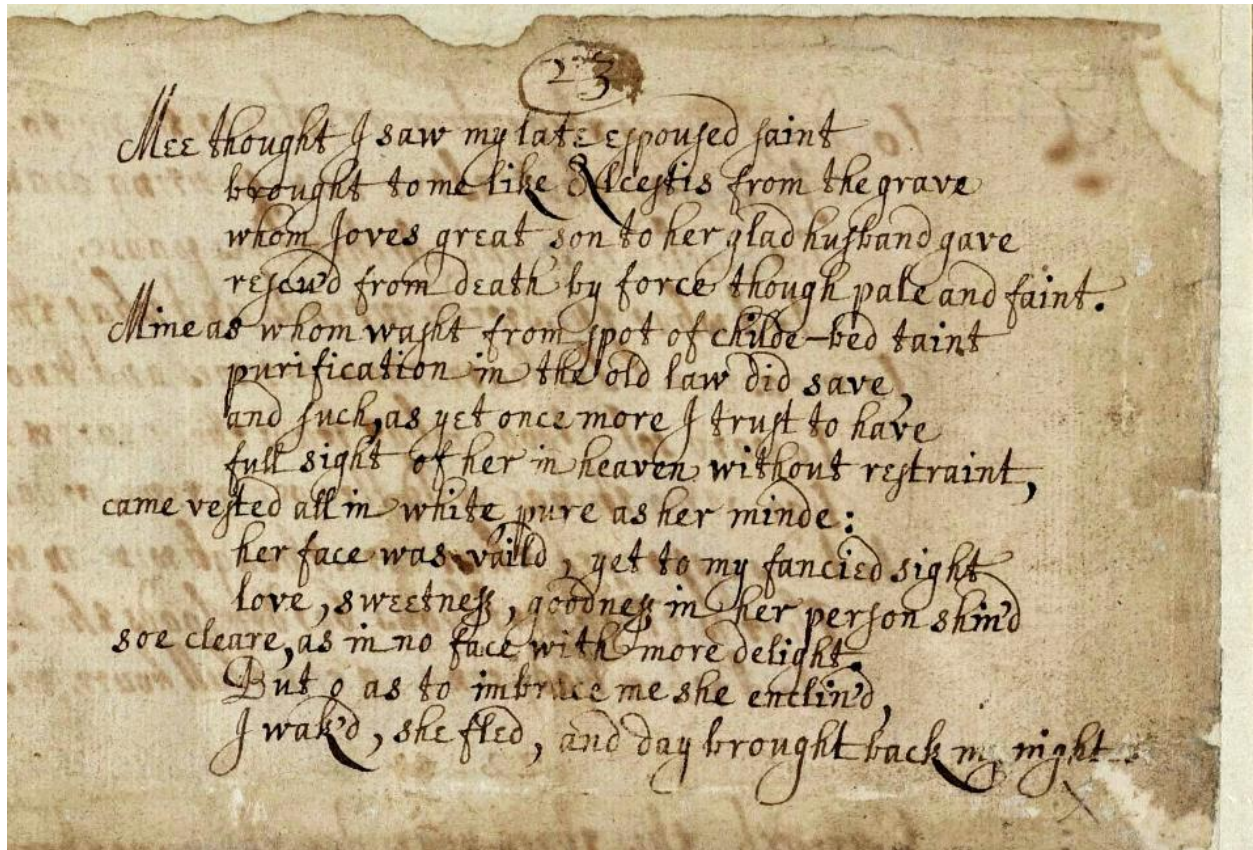 23
Mee thought I saw my late espoused saint
brought to me like Alcestis from the grave
whom Joves great son to her glad husband gave
rescu'd from death by force though pale and faint.
Mine as whom washt from spot of childe-bed taint
purification in the old law did save,
and such, as yet once more I trust to have
full sight of her in heaven without restraint,
came vested all in white, pure as her minde:
her face was vaild, yet to my fancied sight
love, sweetness, goodness in her person shin'd
soe cleare, as in no face with more delight.
But o as to imbrace me she enclin'd,
I wak'd, she fled, and day brought back my night